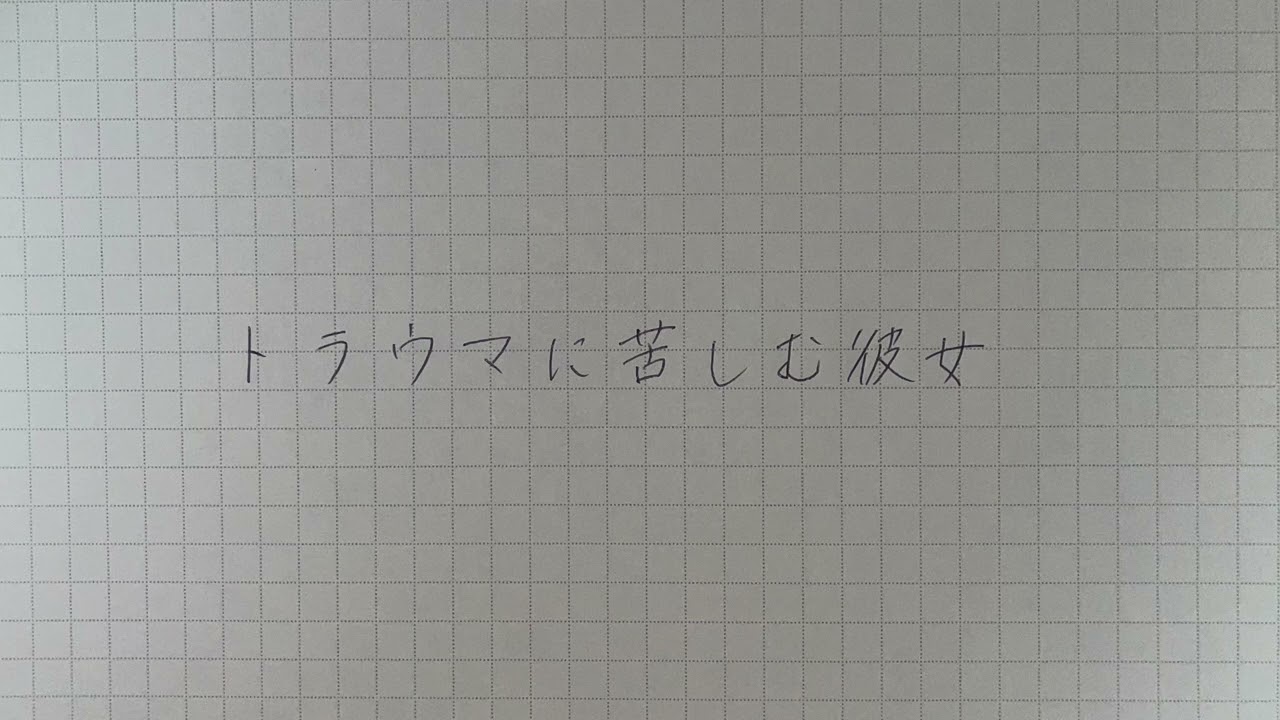 トラウマに苦しむ彼女